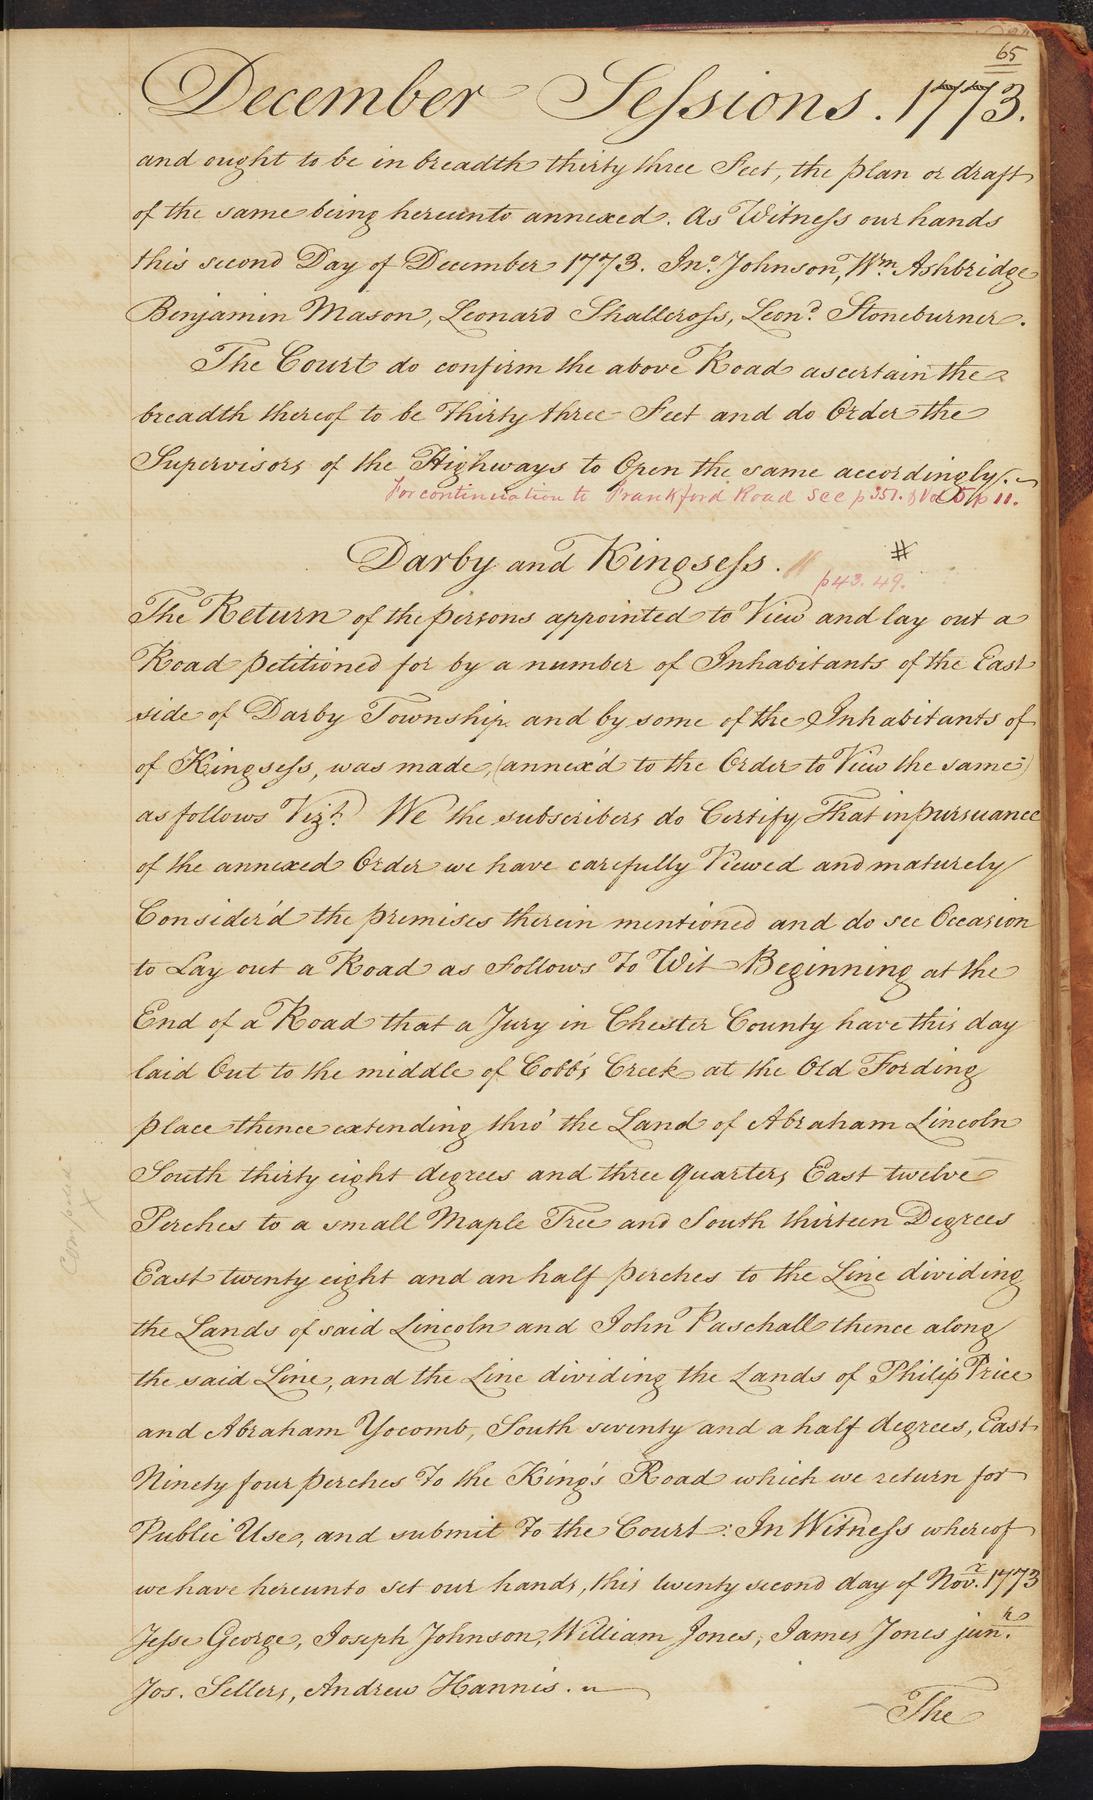 65
December Sessions. 1773.
and ought to be in breadth thirty three Feet, the plan or draft
of the same being hereunto annexed. As Witness our hands
this second Day of December 1773. Jno. Johnson, Wm. Ashbridge
Benjamin Mason, Leonard Shallcross, Leond. Stoneburner.
The Court do confirm the above Road ascertain the
breadth thereof to be thirty three Feet and do Order the
Supervisors of the Highways to Open the same accordingly.
For continuation to Frankford Road see p 351. & Vol 5 p 11.
Darby and Kingsess. #
p 43. 49.
The Return of the persons appointed to View and lay out a
Road petitioned for by a number of Inhabitants of the East
side of Darby Township and by some of the Inhabitants of
of Kingsess, was made, (annex'd to the Order to View the same)
as follows Vizt. We the subscribers do Certify That in pursuance
of the annexed Order we have carefully Viewed and maturely
Consider'd the premises therein mentioned and do see Occasion
to Lay out a Road as Follows To Wit Beginning at the
End of a Road that a Jury in Chester County have this day
laid Out to the middle of Cobb's Creek at the Old Fording
place thence extending thro' the Land of Abraham Lincoln
South thirty eight degrees and three quarters East twelve
Perches to a small Maple Tree and South thirteen Degrees
East twenty eight and an half perches to the Line dividing
the Lands of said Lincoln and John Paschall thence along
the said Line, and the Line dividing the Lands of Philip Price
and Abraham Yocomb, South seventy and a half degrees, East
Ninety four perches To the King's Road which we return for
Public Use, and submit To the Court: In Witness whereof
we have hereunto set our hands, this twenty second day of Novr. 1773
Jesse George, Joseph Johnson, William Jones, James Jones junr.
Jos. Sellers, Andrew Hannis.
The